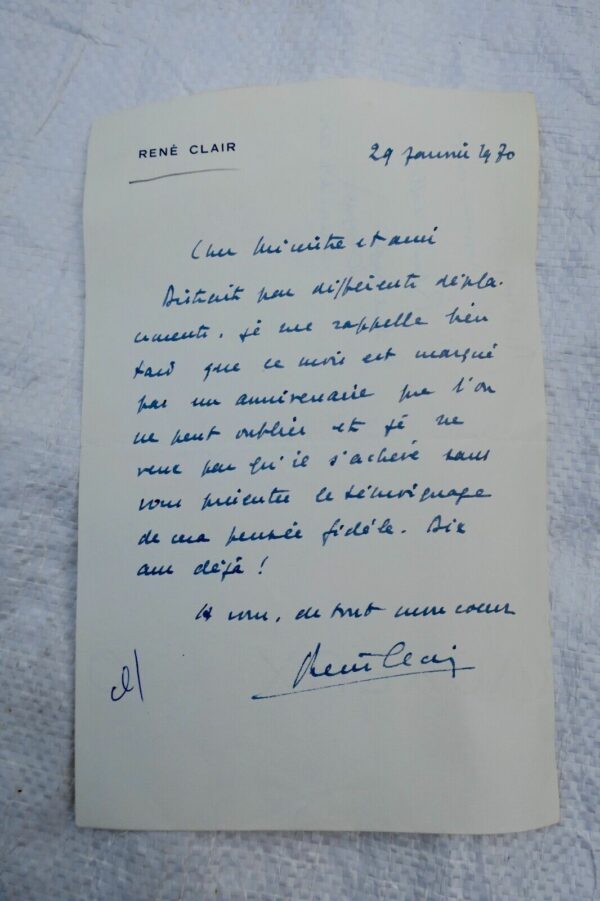 RENÉ CLAIR
29 janvier 1970
Cher Ministre et ami
Distrait par différents dépla-
cements, je me rappelle bien
tard que ce mois est marqué
par un anniversaire que l'on
ne peut oublier et je ne
veux pas qu'il s'achève sans
vous présenter le témoignage
de ma pensée fidèle. Dix
ans déjà !
A vous, de tout mon coeur
René Clair